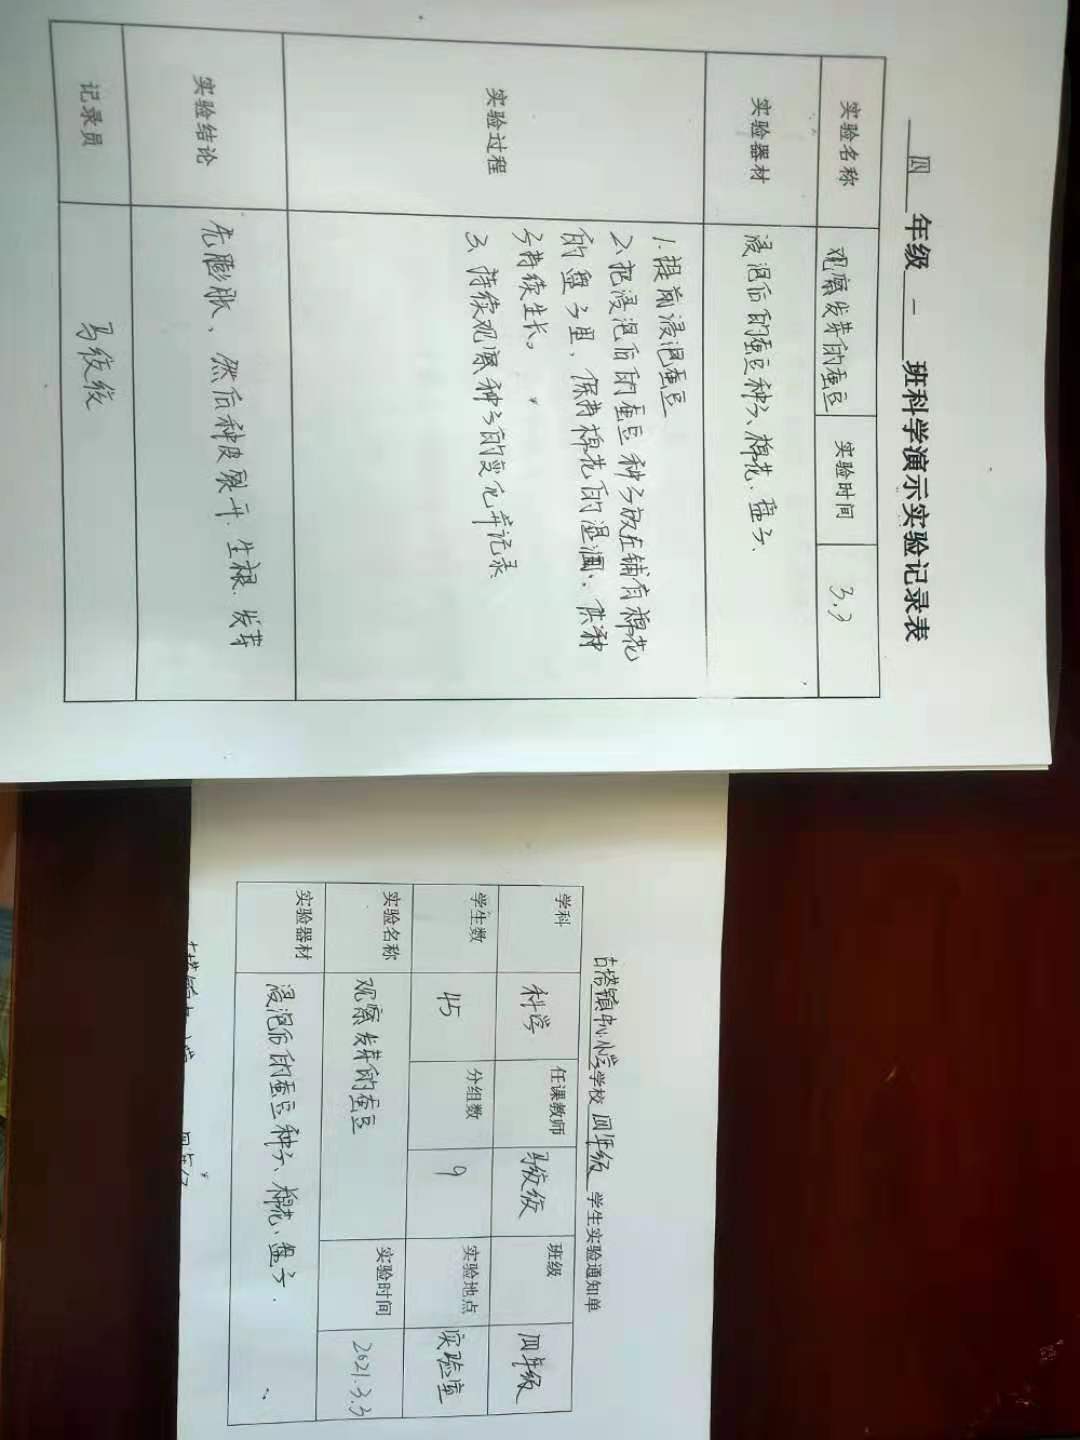 四 年级 一 班科学演示实验记录表
实验名称 观察发芽的蚕豆 实验时间 3.3
实验器材 浸泡后的蚕豆种子、棉花、盘子、
实验过程
1.提前浸泡蚕豆
2、把浸泡后的蚕豆种子放在铺有棉花
的盘子里,保持棉花的湿润,供种
子持续生长。
3、持续观察种子的变化并记录
实验结论 先膨胀、然后种皮裂开.生根.发芽
记录员 马绞绞
古塔镇中心小学学校 四年级 学生实验通知单
学科 科学 任课教师 马绞绞 班级 四年级
学生数 45 分组数 9 实验地点 实验室
实验名称 观察发芽的蚕豆 实验时间 2021.3.3
实验器材 浸泡后的蚕豆种子、棉花、盘子.